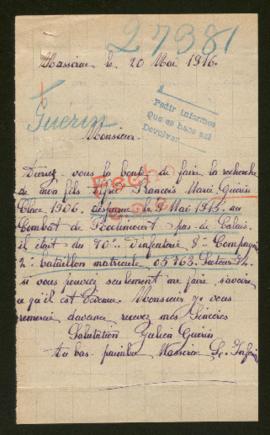 27381
le 20 Mai 1916
Pedir informes
Que se hace sul
Devolver
Guerin
Monsieur
vous la bonté de faire la recherche
de mon fils François Marie Guérin
Classe 1906 disparu le 9 Mai 1915 au
Combat de pas de Calais
il était du 70e d'infanterie 8e Compagnie
2e bataillon matricule 05763 Secteur
si vous pouvez seulement me faire savoir
qu'il est Monsieur je vous
remercie davance recevez mes Sincères
Salutation Julien Guérin
au bas